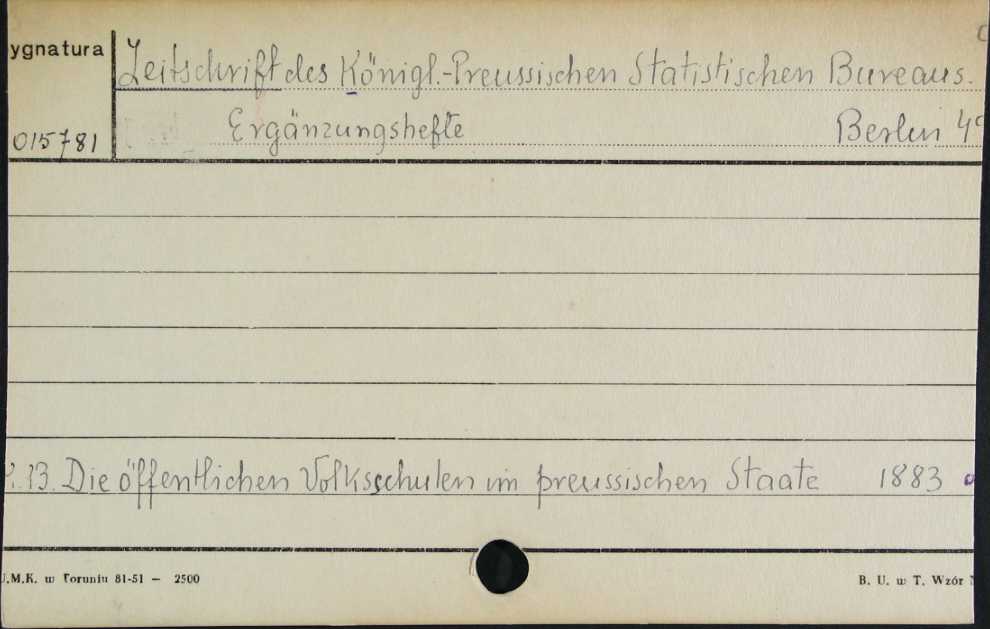 ygnatura
Zeitschrift des Königl.-Preussischen Statistischen Bureaus.
015781
Ergänzungshefte Berlin 4°
13. Die öffentlichen Volksschulen im preussischen Staate 1883
.M.K. w Toruniu 81-51 — 2500
B. U. w T. Wzór